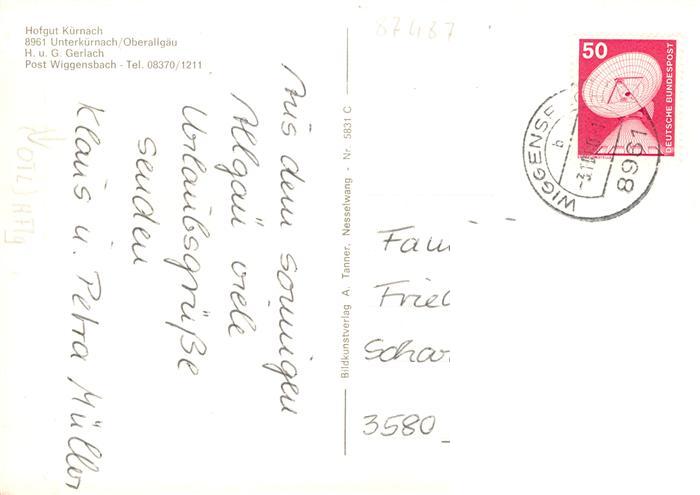 Hofgut Kürnach
8961 Unterkürnach/Oberallgäu
H. u. G. Gerlach
Post Wiggensbach - Tel. 08370/1211
Aus dem sonnigen
Allgäu viele
Urlaubsgrüße
senden
Klaus u. Petra Müller
Bildkunstverlag A. Tanner, Nesselwang - Nr. 5831 C
87487
50
DEUTSCHE BUNDESPOST
WIGGENSB
b
8961
Fam
Fried
Schar
3580